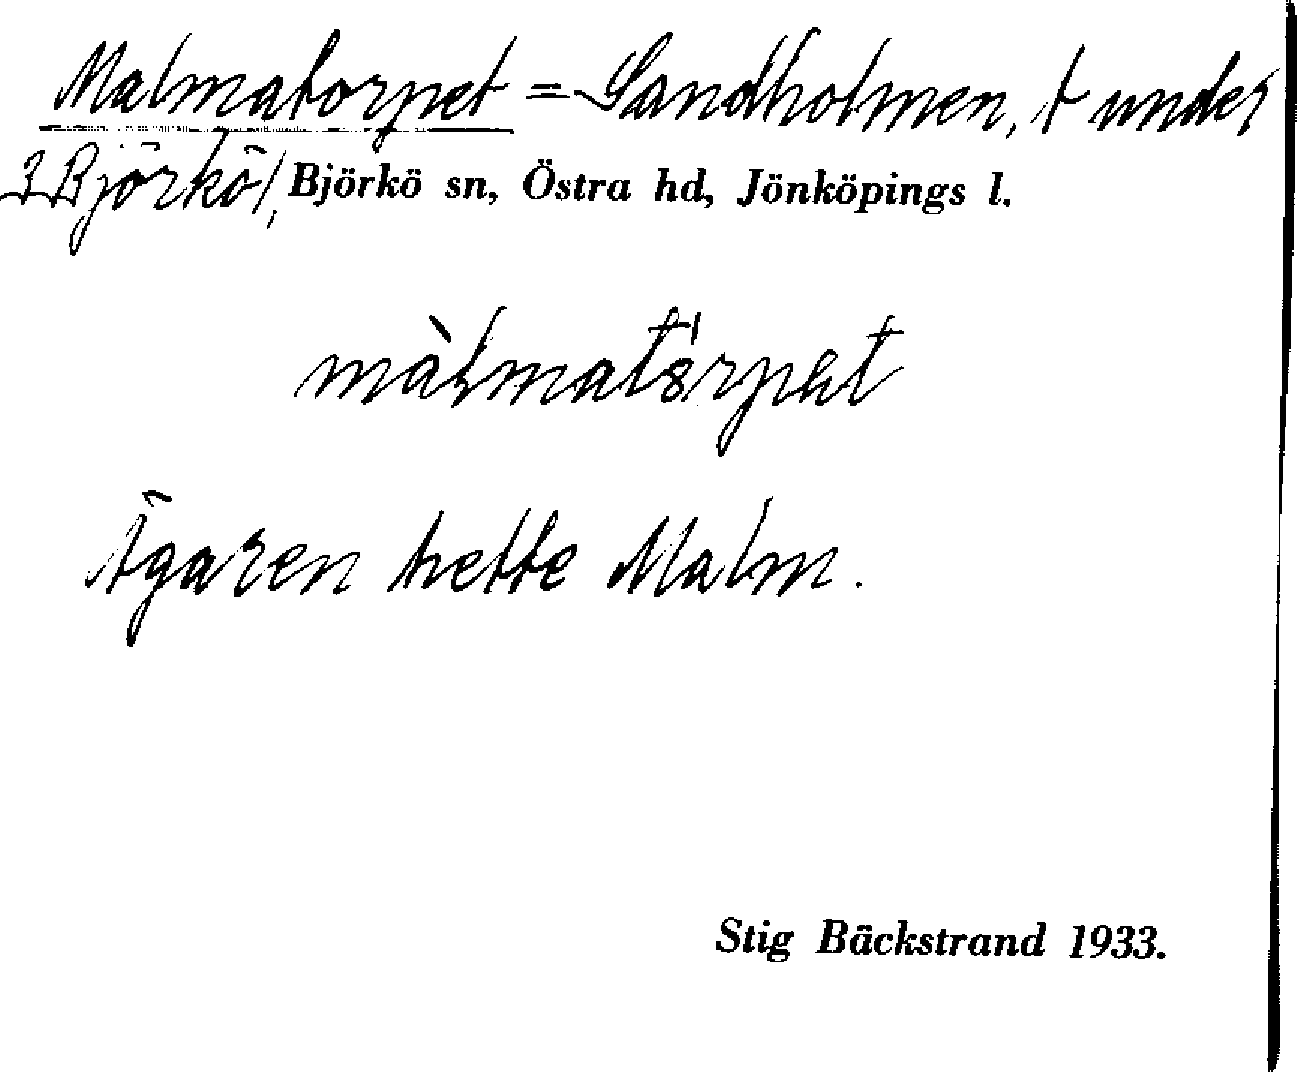 Malmatorpet = Sandholmen, t under
3 Björkö, Björkö sn, Östra hd, Jönköpings l.
màlmatórpet
Ägaren hette Malm.
Stig Bäckstrand 1933.